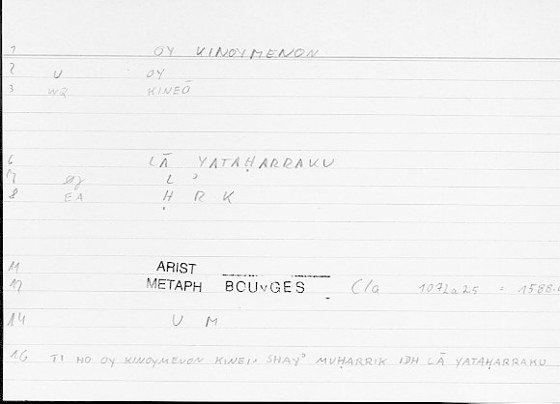 1 OY KINOYMENON
2 U OY
3 WQ KINEŌ
6 LĀ YATAḤARRAKU
7 L ʾ
8 EA Ḥ R K
11 ARIST
12 METAPH BOUYGES C/a 1072a25 = 1588.
14 U M
16 TI HO OY KINOYMENON KINEI = SHAYʾ MUḤARRIK IDH LĀ YATAḤARRAKU